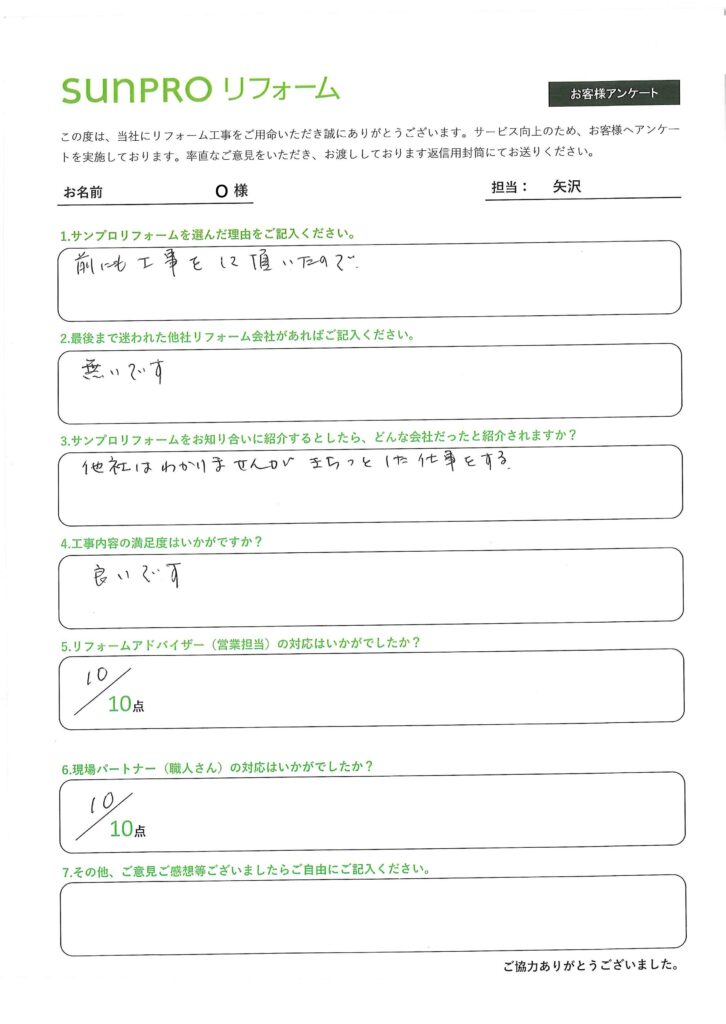 sunPRO リフォーム
お客様アンケート
この度は、当社にリフォーム工事をご用命いただき誠にありがとうございます。サービス向上のため、お客様へアンケー
トを実施しております。率直なご意見をいただき、お渡ししております返信用封筒にてお送りください。
お名前 O 様
担当： 矢沢
1.サンプロリフォームを選んだ理由をご記入ください。
前にも工事をして頂いたので.
2.最後まで迷われた他社リフォーム会社があればご記入ください。
無いです
3.サンプロリフォームをお知り合いに紹介するとしたら、どんな会社だったと紹介されますか？
他社はわかりませんがきちっとした仕事をする.
4.工事内容の満足度はいかがですか？
良いです
5.リフォームアドバイザー（営業担当）の対応はいかがでしたか？
10
10点
6.現場パートナー（職人さん）の対応はいかがでしたか？
10
10点
7.その他、ご意見ご感想等ございましたらご自由にご記入ください。
ご協力ありがとうございました。